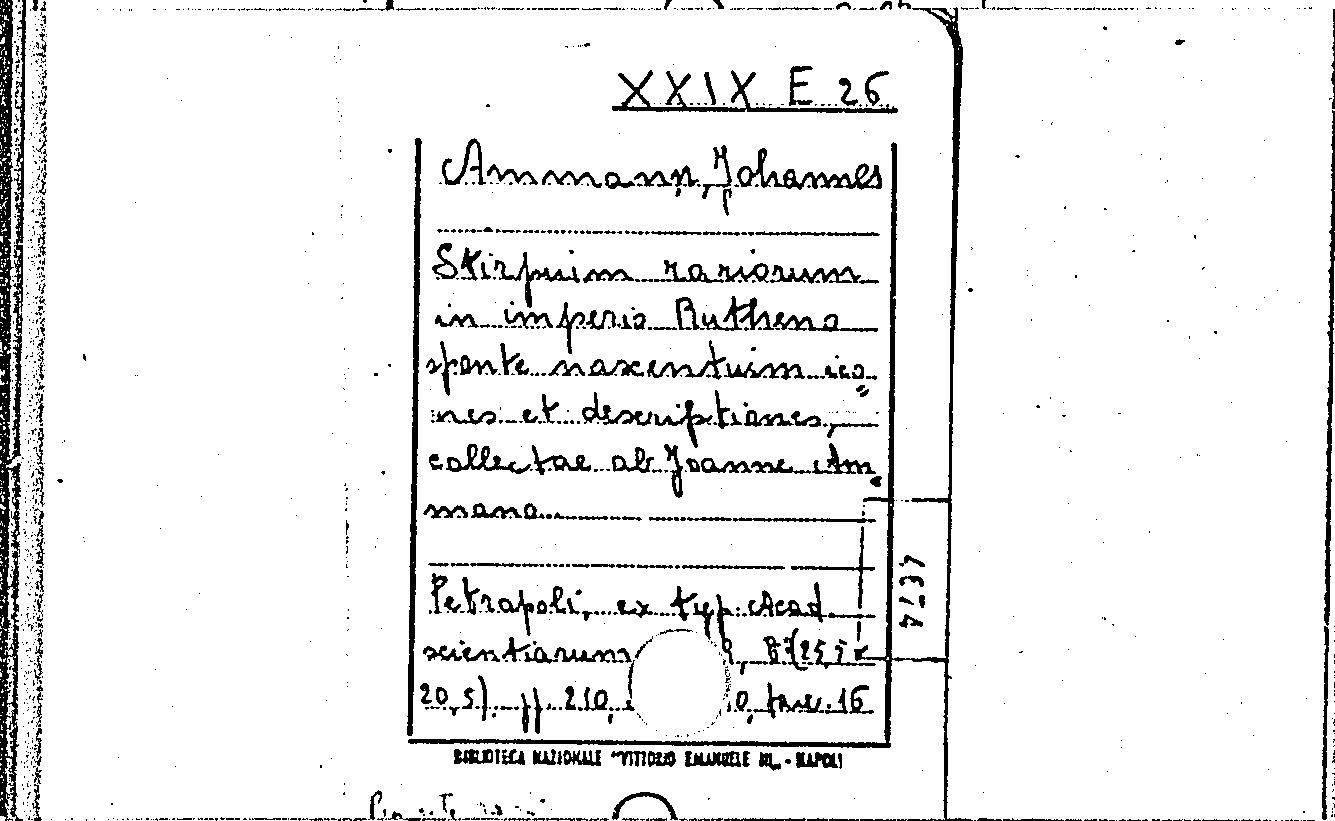 XXIX E 26
Ammann, Johannes
Stirpium rariorum
in imperio Rutheno
sponte nascentium ico=
nes et descriptiones,
collectae ab Joanne Am=
mano...
Petropoli, ex typ. Acad.
scientiarum 8° (25,5 x
20,5). pp. 210, 0, tav. 16
BIBLIOTECA NAZIONALE "VITTORIO EMANUELE III" - NAPOLI